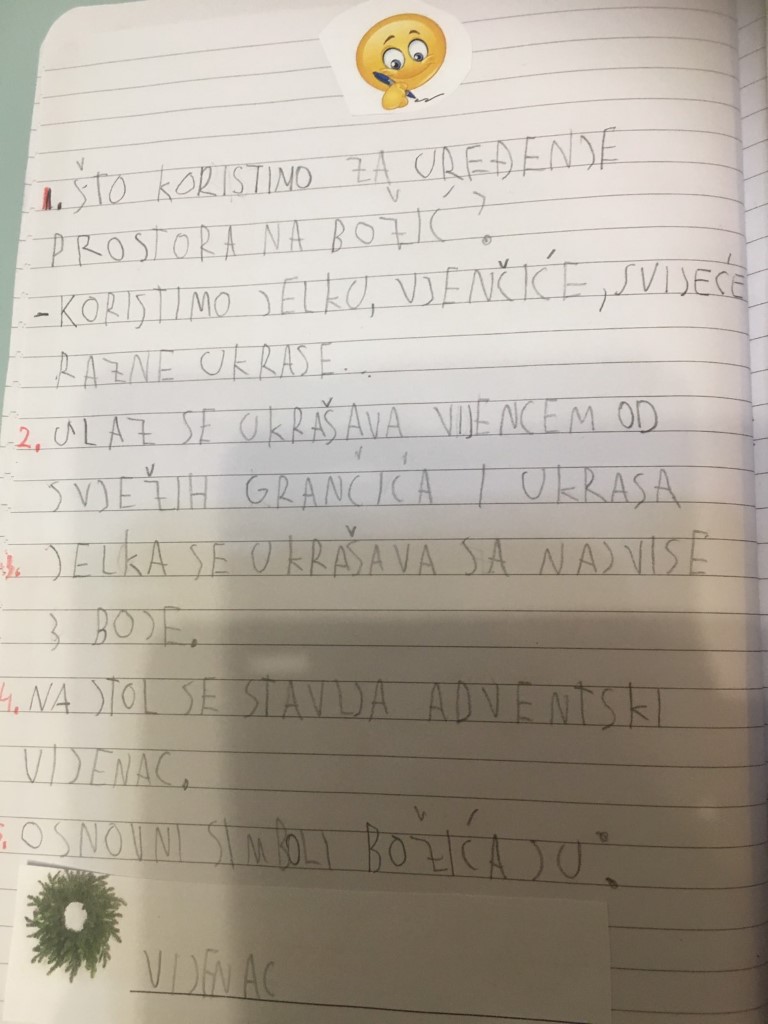 1. ŠTO KORISTIMO ZA UREĐENJE
PROSTORA NA BOŽIĆ?
- KORISTIMO JELKU, VJENČIĆE, SVIJEĆE
RAZNE UKRASE...
2. ULAZ SE UKRAŠAVA VIJENCEM OD
SVJEŽIH GRANČIĆA I UKRASA
3. JELKA SE UKRAŠAVA SA NAJVISE
3 BOJE.
4. NA STOL SE STAVLJA ADVENTSKI
VIJENAC.
5. OSNOVNI SIMBOLI BOŽIĆA JU:
VIJENAC